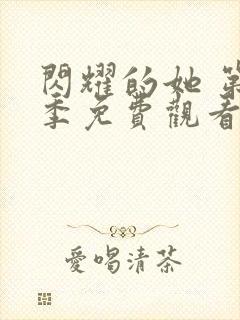 閃耀的她 第
季免費觀看
愛喝清茶